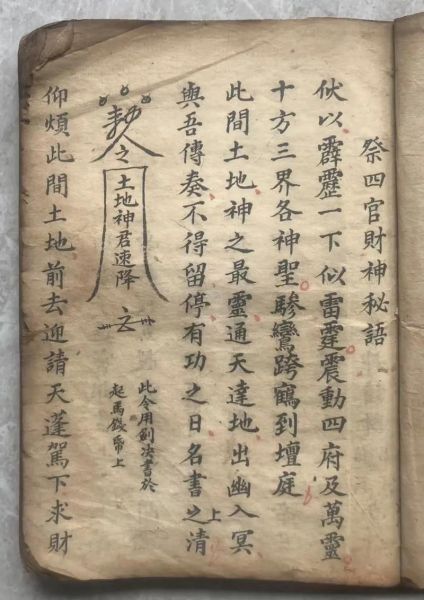 祭四官財神秘語
伏以霹靂一下似雷霆震動四府及萬靈
十方三界各神聖驂鸞跨鶴到壇庭
此間土地神之最靈通天達地出幽入冥
與吾傳奏不得留停有功之日名書之上清
土地神君速降
此令用劍决書於
起馬錢帋上
仰煩此間土地前去迎請天蓬駕下求財